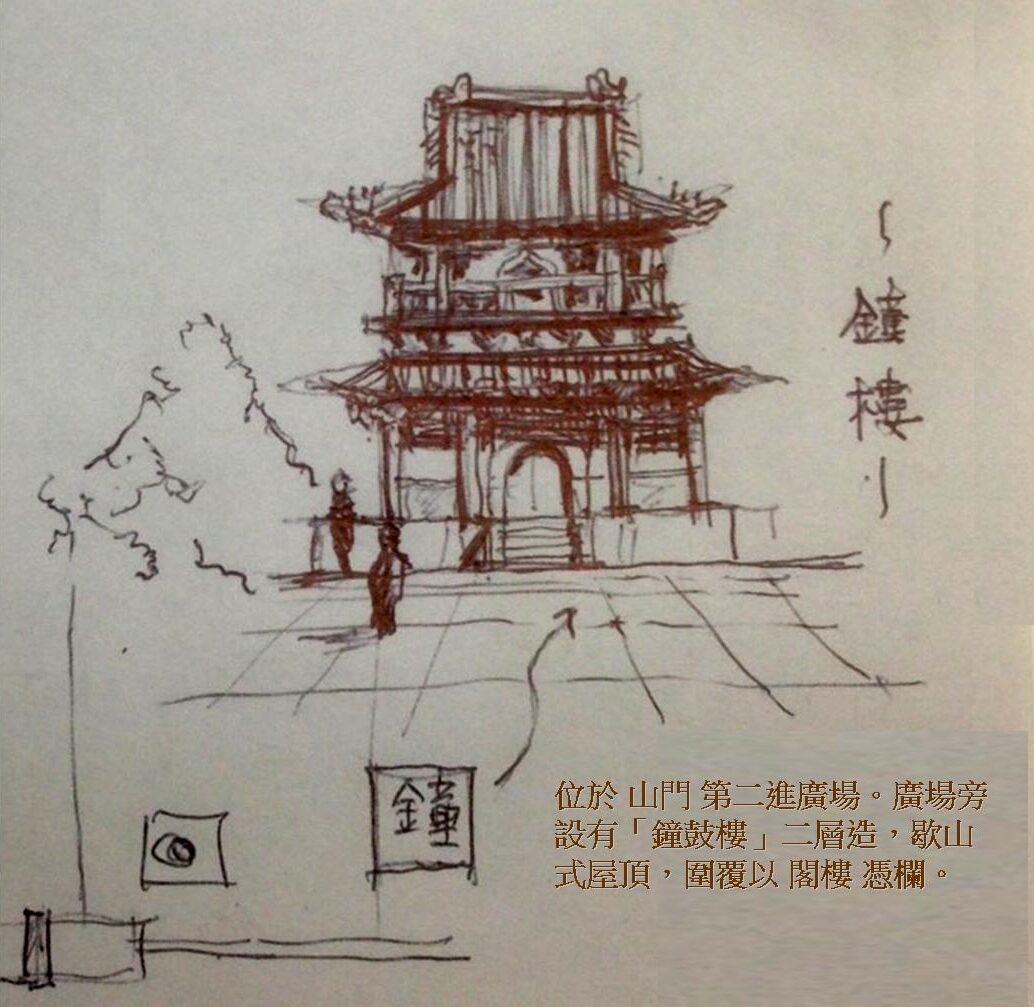 ~鐘樓~
鐘
位於 山門 第二進廣場。廣場旁
設有「鐘鼓樓」二層造，歇山
式屋頂，圍覆以 閣樓 憑欄。